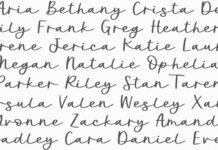 Aria Bethany Crista De
ily Frank Greg Heather
rene Jerica Katie Laur
Megan Natalie Ophelia
Parker Riley Stan Taren
rsula Valen Wesley Xan
vonne Zackary Amand
radley Cara Daniel Eve